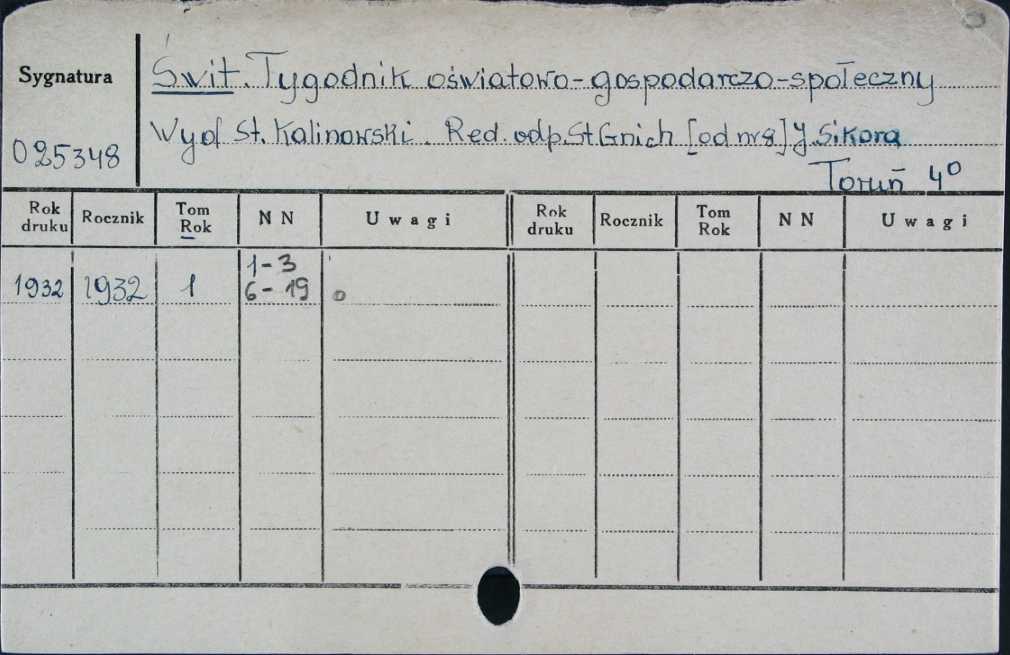 Sygnatura
Świt. Tygodnik oświatowo-gospodarczo-społeczny
Wyd St. Kalinowski. Red. odp. St Gnich [od nr 8] J. Sikora
025348
Toruń 4º
Rok druku Rocznik Tom Rok NN Uwagi Rok druku Rocznik Tom Rok NN Uwagi
1-3
1932 1932 1 6-19 o